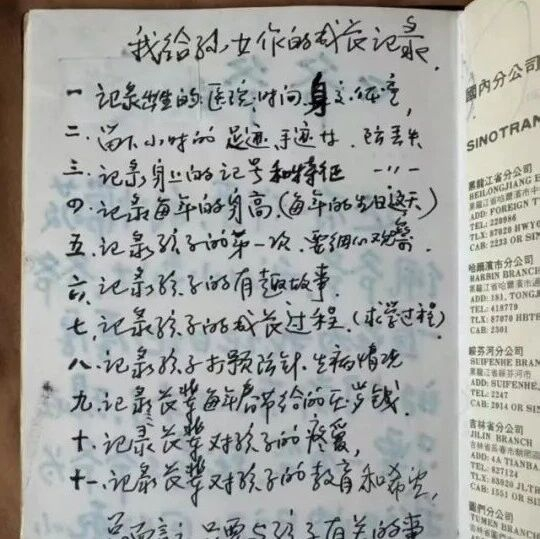 我给孙女作的成长记录.
一.记录出生的医院.时间.身高.体重,
二.留下小时的足迹.手迹 防丢失
三.记录身上的记号和特征 -"-
四.记录每年的身高,(每年的生日这天)
五.记录孩子的第一次.要细心观察.
六.记录孩子的有趣故事.
七.记录孩子的成长过程.(求学过程)
八.记录孩子打预防针.生病情况
九.记录长辈每年春节给的压岁钱.
十.记录长辈对孩子的疼爱,
十一.记录长辈对孩子的教育和希望,
总而言之只要与孩子有关的事
國內分公司
SINOTRAN
黑龍江省分公司
HEILONGJIANG B
ADD: FOREIGN T
TEL: 220986
TLX: 87020 HWYO
CAB: 2233 OR SIN
哈爾濱市分公司
HARBIN BRANCH
ADD: 181, TONGJ
TEL: 418779
TLX: 87070 HBTS
CAB: 2301
綏芬河分公司
SUIFENHE BRANC
黑龍江省綏芬河市
ADD: SUIFENHE,
TEL: 2247
CAB: 2914 OR SIN
吉林省分公司
JILIN BRANCH
ADD: 4A TIANBA
TEL: 827124
TLX: 83020 JLTR
CAB: 1551 OR SIN
圖們分公司
TUMEN BRANCH